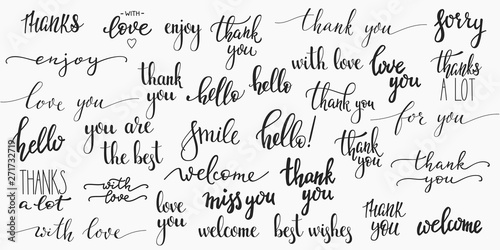 thanks
with
love
enjoy
thank
you
thank you
sorry
enjoy
thank
you
hello
hello
with love
love
you
thanks
a lot
love you
thank you
for you
hello
you are
the best
smile
hello!
thank
you
thank
you
thanks
a lot
with
love
welcome
thank
you
miss you
with love
love
you
welcome
best wishes
thank
you
welcome
Adobe Stock
271732719